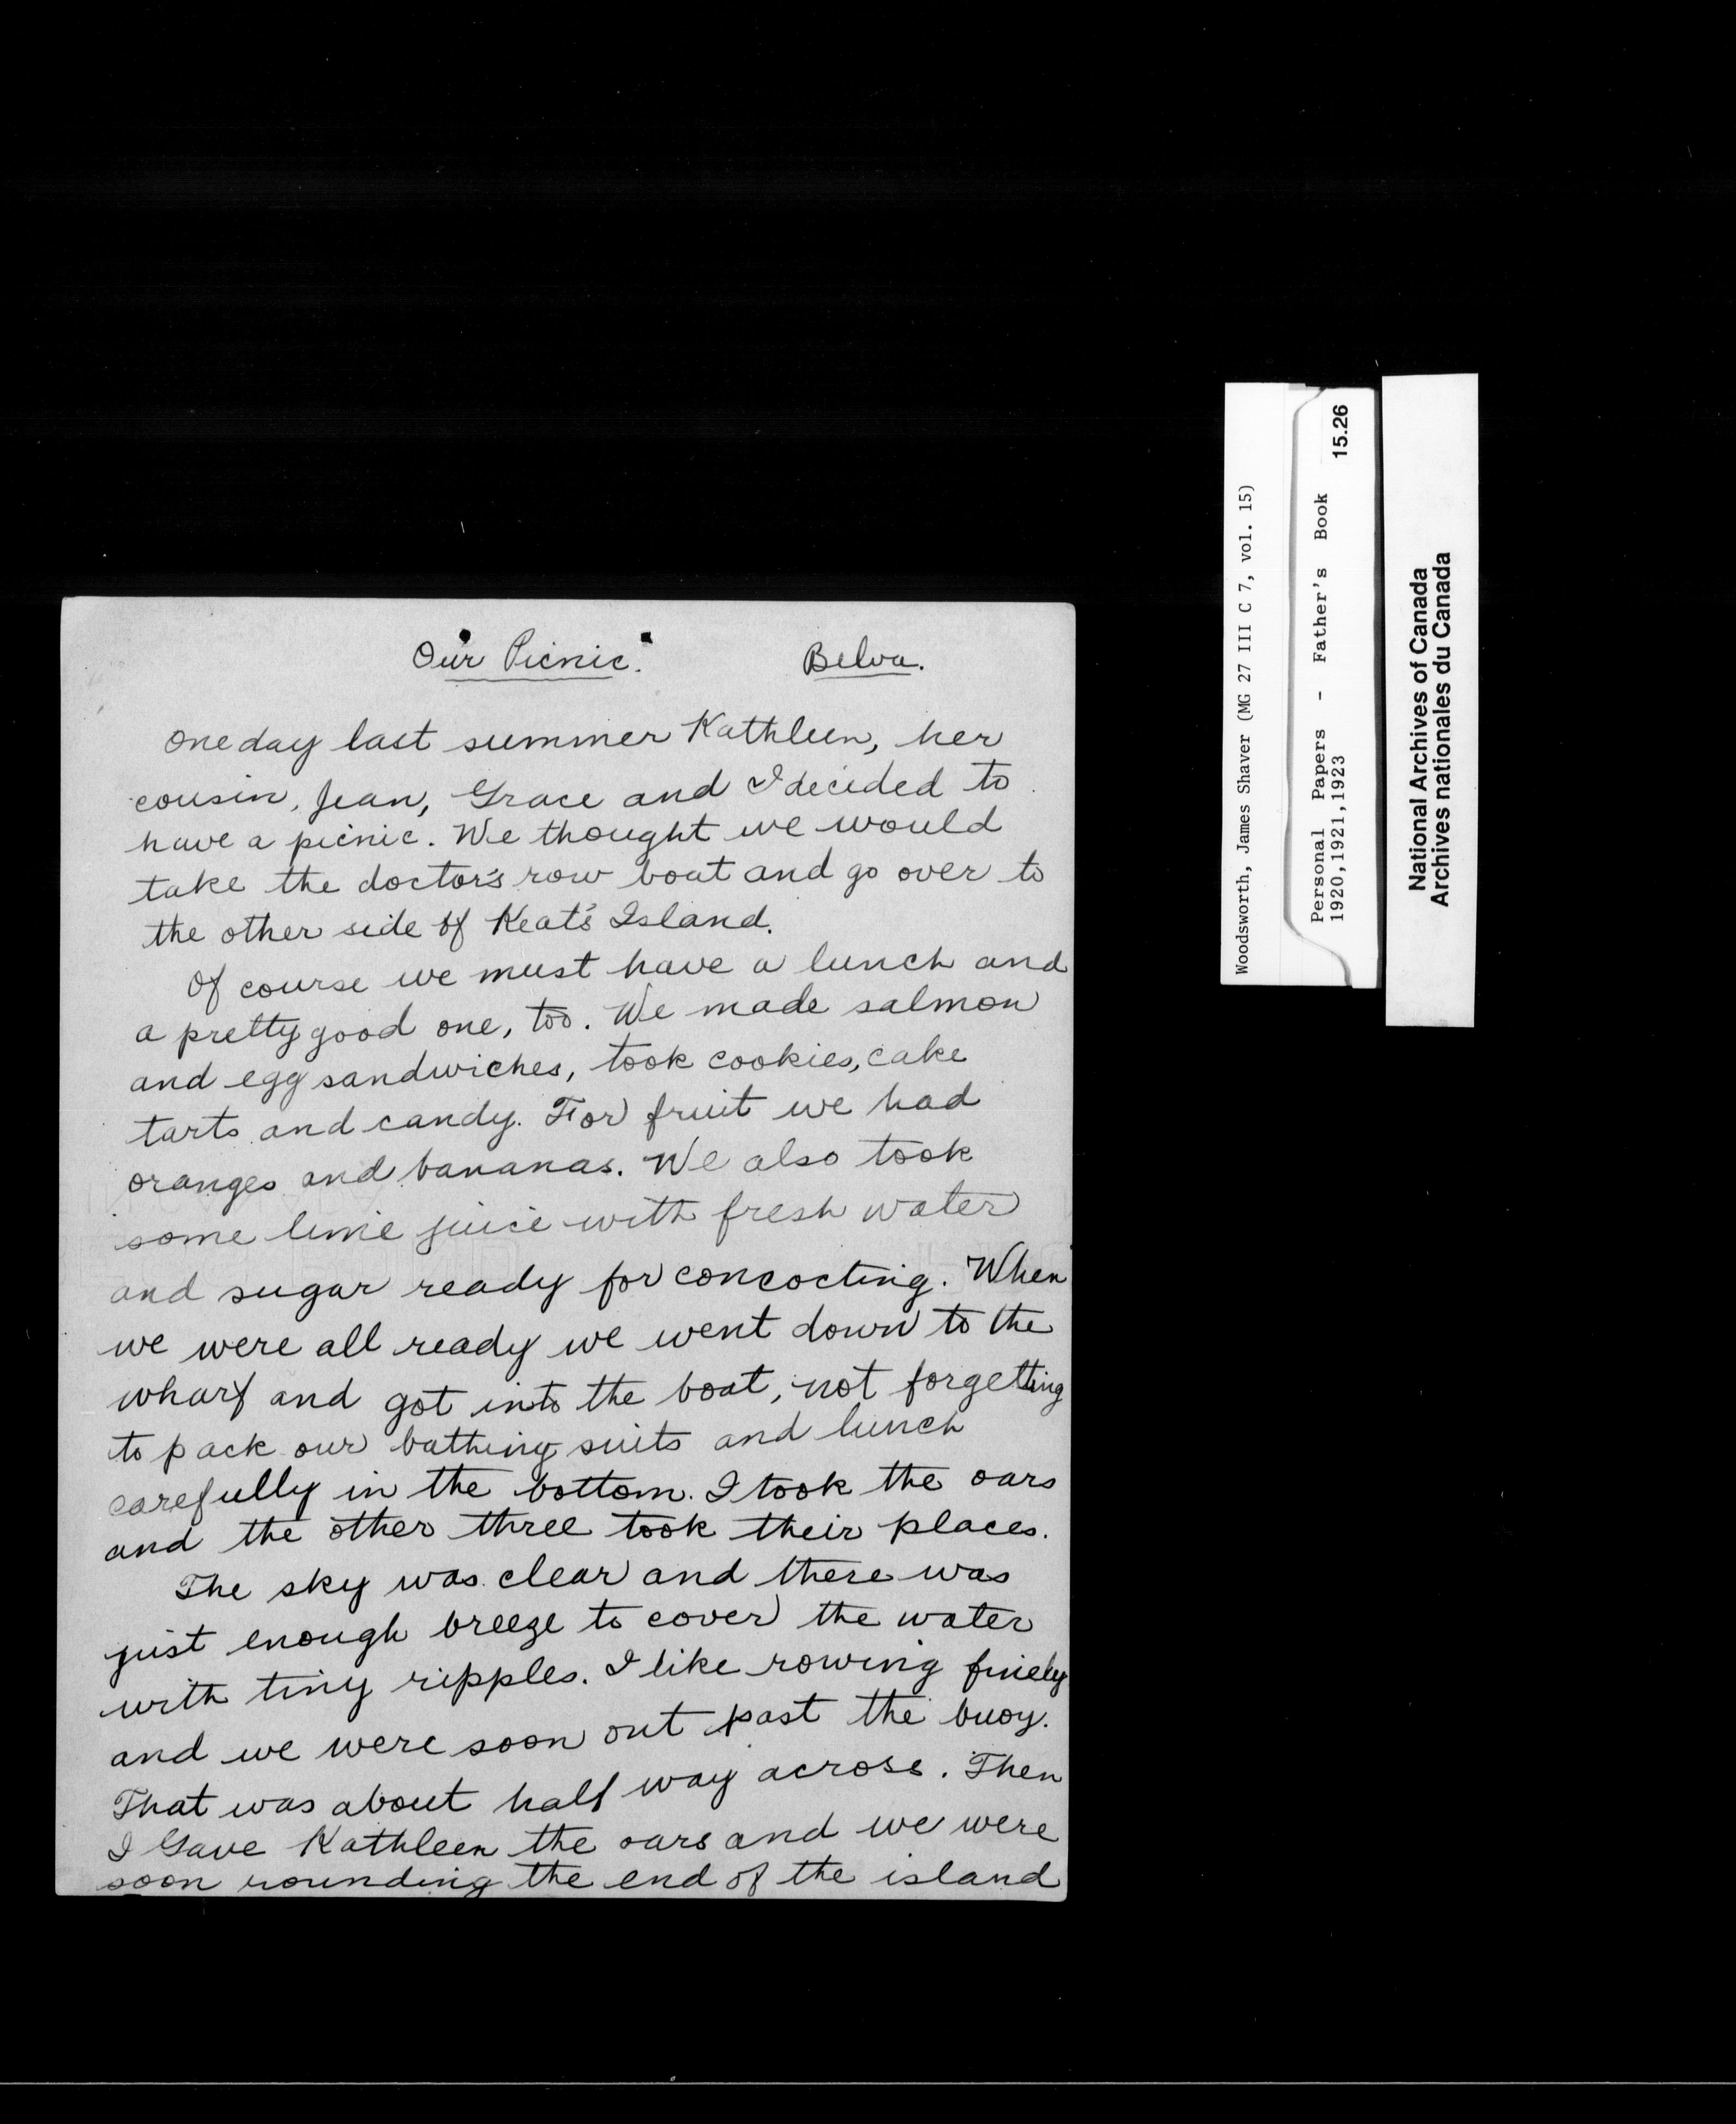 Our Picnic. Belva.
One day last summer Kathleen, her
cousin, Jean, Grace and I decided to
have a picnic. We thought we would
take the doctor's row boat and go over to
the other side of Keat's Island.
Of course we must have a lunch and
a pretty good one, too. We made salmon
and egg sandwiches, took cookies, cake
tarts and candy. For fruit we had
oranges and bananas. We also took
some lime juice with fresh water
and sugar ready for concocting. When
we were all ready we went down to the
wharf and got into the boat, not forgetting
to pack our bathing suits and lunch
carefully in the bottom. I took the oars
and the other three took their places.
The sky was clear and there was
just enough breeze to cover the water
with tiny ripples. I like rowing finely
and we were soon out past the buoy.
That was about half way across. Then
I Gave Kathleen the oars and we were
soon rounding the end of the island
Woodsworth, James Shaver (MG 27 III C 7, vol. 15)
Personal Papers - Father's Book 15.26
1920,1921,1923
National Archives of Canada
Archives nationales du Canada